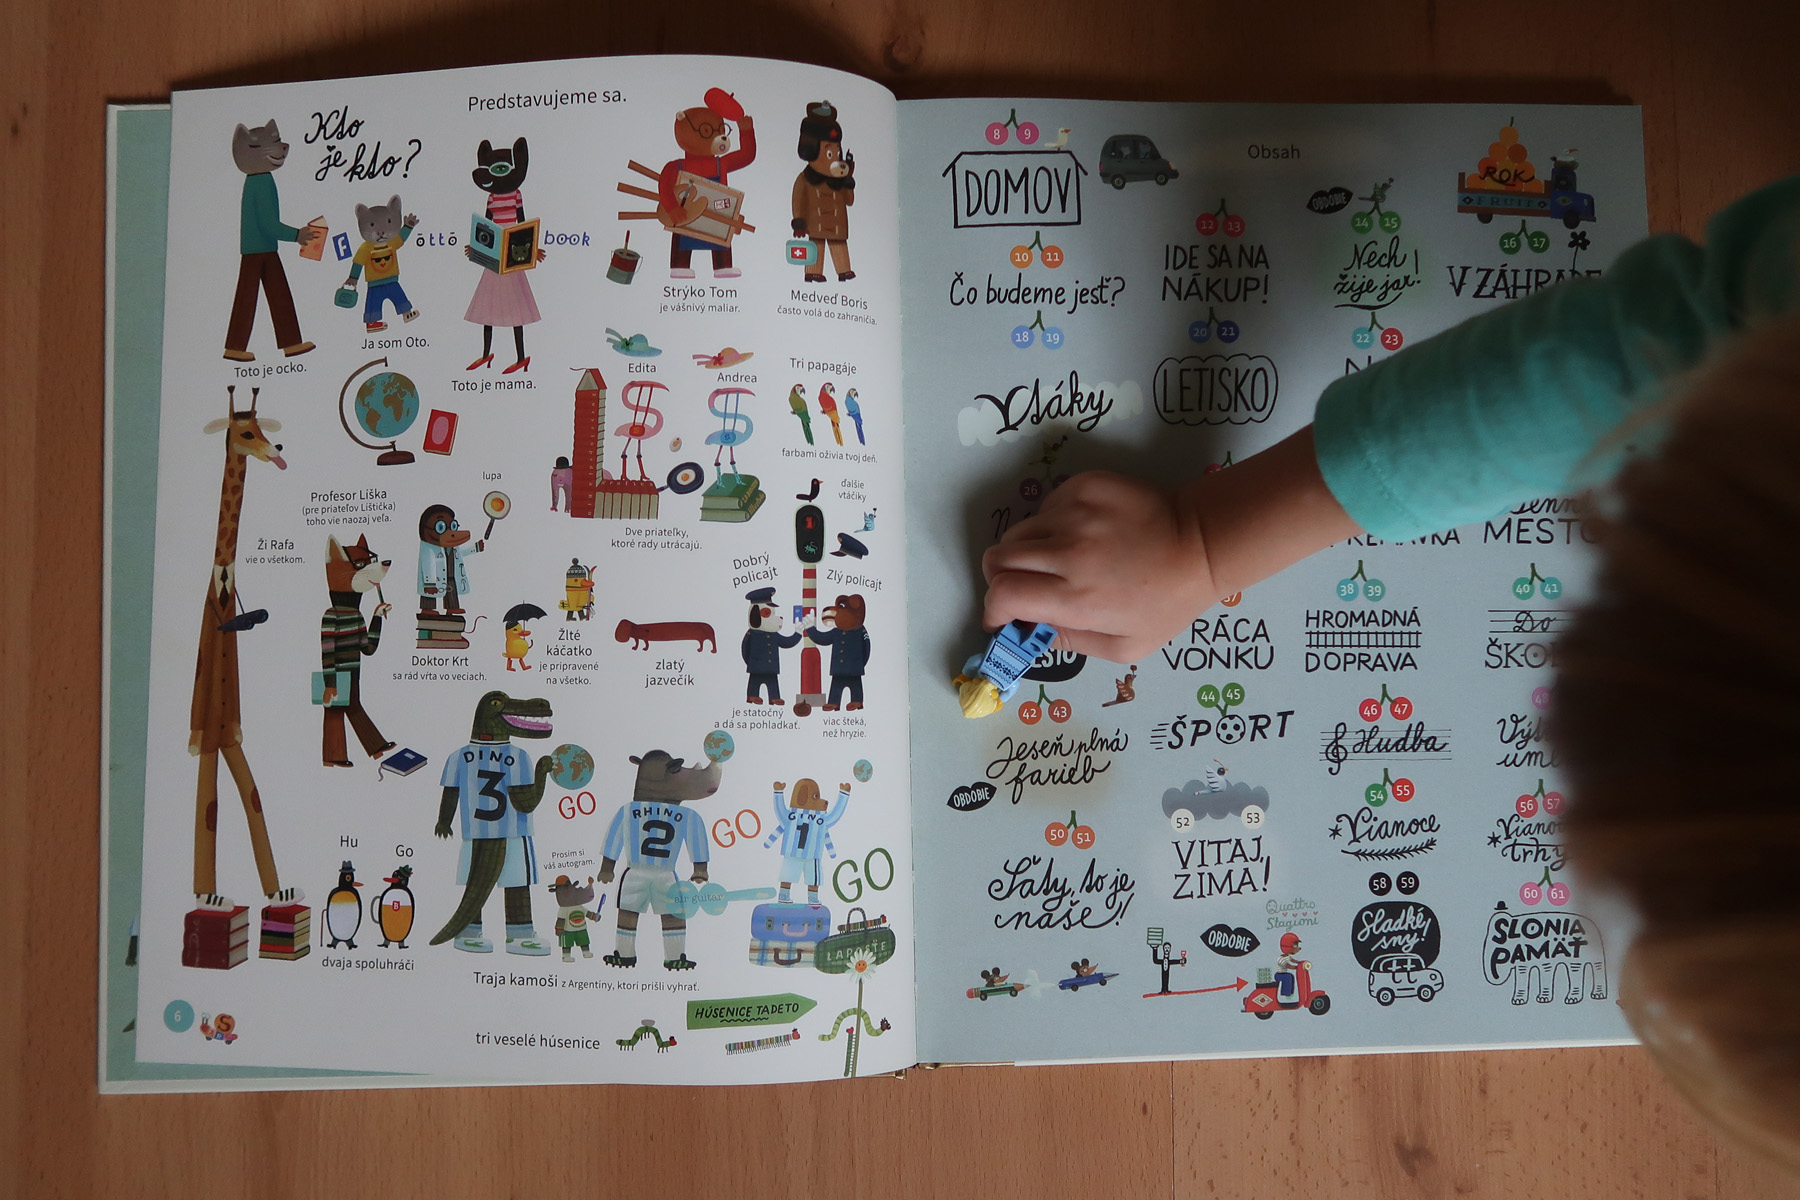 Predstavujeme sa.
Kto
je kto?
f
õttõ
book
Toto je ocko.
Ja som Oto.
Toto je mama.
Strýko Tom
je vášnivý maliar.
Medveď Boris
často volá do zahraničia.
Edita
Andrea
Tri papagáje
farbami oživia tvoj deň.
lupa
Profesor Líška
(pre priateľov Lištička)
toho vie naozaj veľa.
Ži Rafa
vie o všetkom.
Dve priateľky,
ktoré rady utrácajú.
ďalšie
vtáčiky
Dobrý
policajt
Zlý policajt
Doktor Krt
sa rád vŕta vo veciach.
Žlté
káčatko
je pripravené
na všetko.
zlatý
jazvečík
je statočný
a dá sa pohladkať.
viac šteká,
než hryzie.
DINO
3
GO
RHINO
2
GO
GINO
1
GO
Prosím si
váš autogram.
air guitar
Hu
Go
dvaja spoluhráči
Traja kamoši z Argentíny, ktorí prišli vyhrať.
LAPOŠTE
HÚSENICE TADETO
tri veselé húsenice
6
S
Obsah
8 9
DOMOV
10 11
Čo budeme jesť?
12 13
IDE SA NA
NÁKUP!
OBDOBIE
14 15
Nech
žije jar!
ROK
FRUIT
16 17
V ZÁHRADE
18 19
Vtáky
20 21
LETISKO
22 23
26
MESTO
38 39
HROMADNÁ
DOPRAVA
40 41
Do
PRÁCA
VONKU
42 43
Jeseň plná
farieb
OBDOBIE
44 45
ŠPORT
46 47
Hudba
50 51
Šaty, to je
naše!
52 53
VITAJ,
ZIMA!
54 55
Vianoce
56 57
trhy
OBDOBIE
Quattro
Stagioni
58 59
Sladké
sny!
60 61
SLONIA
PAMÄŤ